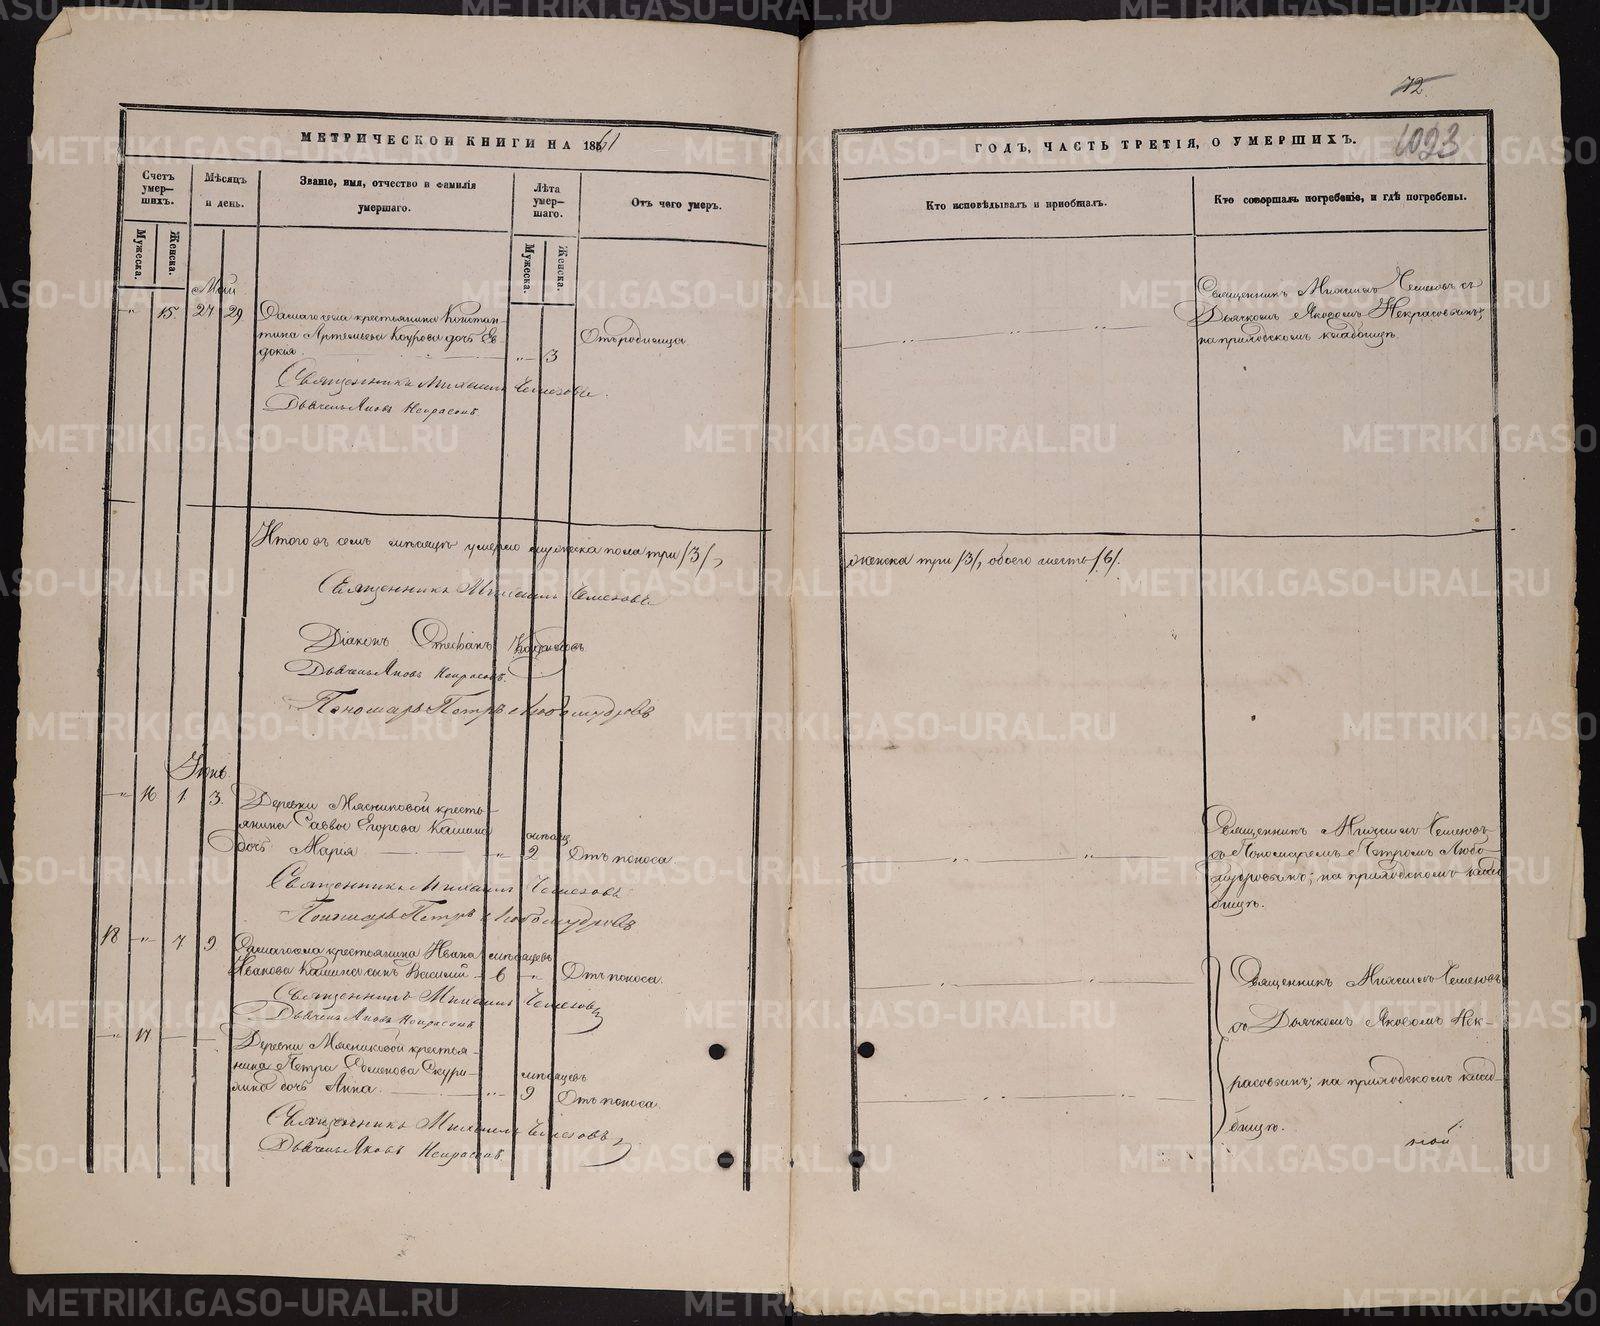 METRIKI.GASO-URAL.RU
72
МЕТРИЧЕСКОЙ КНИГИ НА 1861
ГОДЪ, ЧАСТЬ ТРЕТІЯ, О УМЕРШИХЪ.
1023
Счетъ умер-шихъ.
Мѣсяцъ и день.
Званіе, имя, отчество и фамилія умершаго.
Лѣта умер-шаго.
Отъ чего умеръ.
Кто исповѣдывалъ и пріобщалъ.
Кто совершалъ погребеніе, и гдѣ погребены.
Мужеска. Женска.
Мужеска. Женска.
Май
15 27 29
крестьянина Констан-
тина Артемьева Коурова дочь Ев-
докія.
3
Отъ родимца
Священникъ Михаилъ Чемезовъ съ
Дьячкомъ Яковомъ Некрасовымъ;
на приходскомъ кладбищѣ.
Священникъ Михаилъ Чемезовъ.
Дьячекъ Яковъ Некрасовъ.
Итого въ семъ мѣсяцѣ умерло мужеска пола три /3/,
женска три /3/, обоего шесть /6/.
Священникъ Михаилъ Чемезовъ
Діаконъ Стефанъ
Дьячекъ Яковъ Некрасовъ.
Пономарь Петръ Любомудровъ
Іюнь.
16 1. 3.
Деревни Мясниковой кресть-
янина Саввы Егорова Кашина
дочь Марія
мѣсяц.
2
Отъ поноса.
Священникъ Михаилъ Чемезовъ
съ Пономаремъ Петромъ Любо-
мудровымъ; на приходскомъ клад-
бищѣ.
Священникъ Михаилъ Чемезовъ
Пономарь Петръ Любомудровъ
18 7 9
крестьянина Ивана
Иванова Кашина сынъ Василій
мѣсяцевъ
6
Отъ поноса.
Священникъ Михаилъ Чемезовъ
Дьячекъ Яковъ Некрасовъ
17
Деревни Мясниковой крестья-
нина Петра
дочь Анна.
мѣсяцевъ
9
Отъ поноса.
Священникъ Михаилъ Чемезовъ
съ Дьячкомъ Яковомъ Нек-
расовымъ; на приходскомъ клад-
бищѣ.
Священникъ Михаилъ Чемезовъ
Дьячекъ Яковъ Некрасовъ